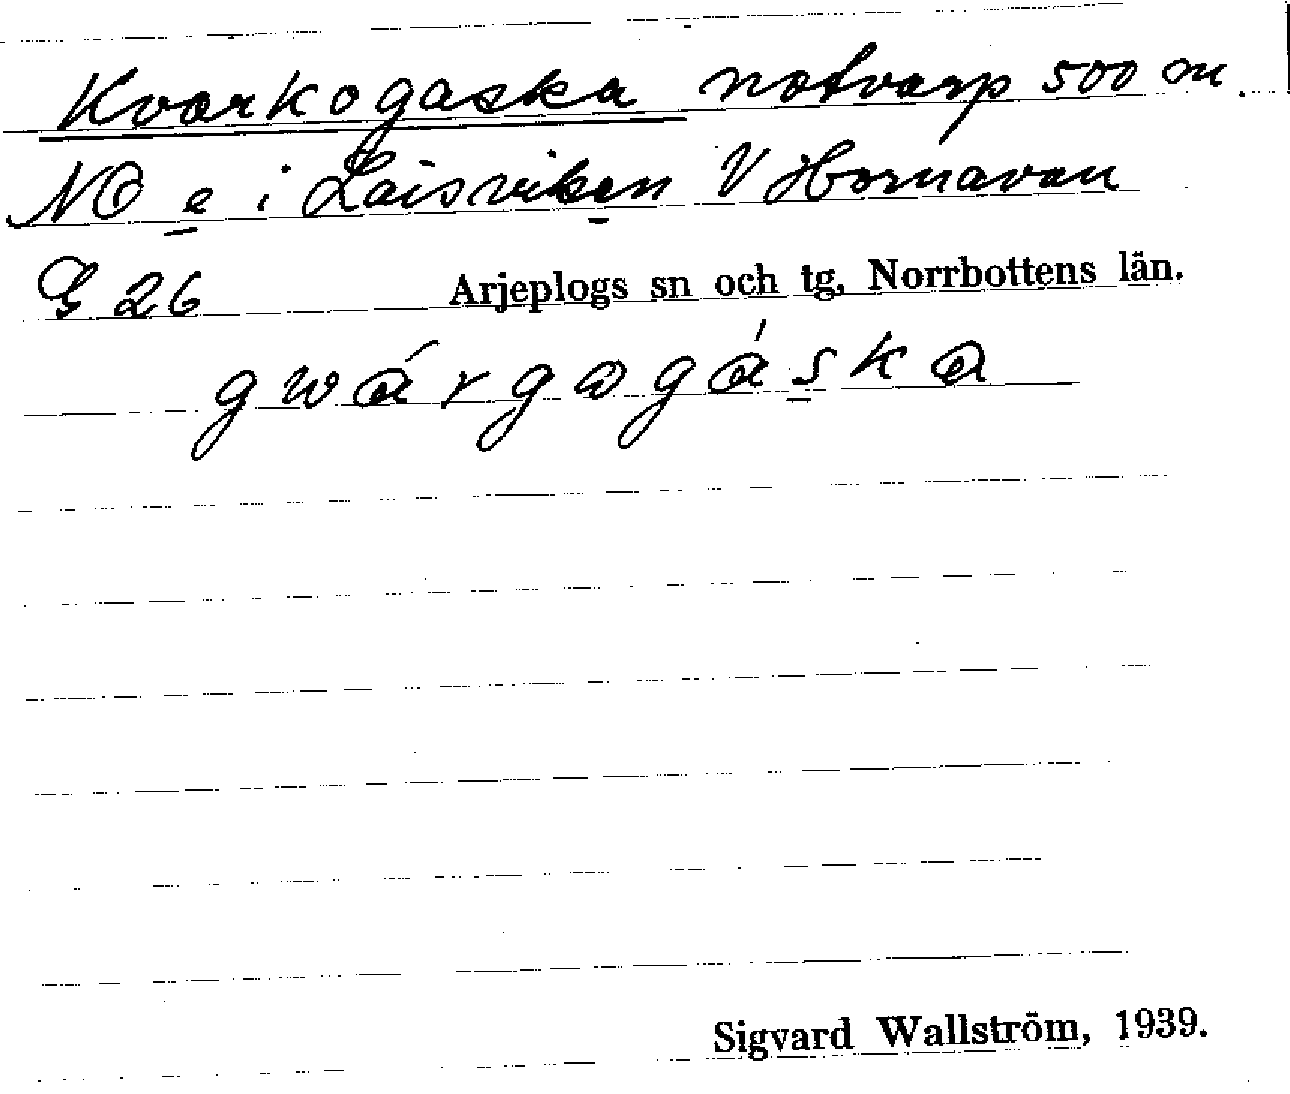 Kvarkogaska notvarp 500 m.
NO e i Laisviken V Hornavan
G 26 Arjeplogs sn och tg, Norrbottens län.
gwárgogáska
Sigvard Wallström, 1939.